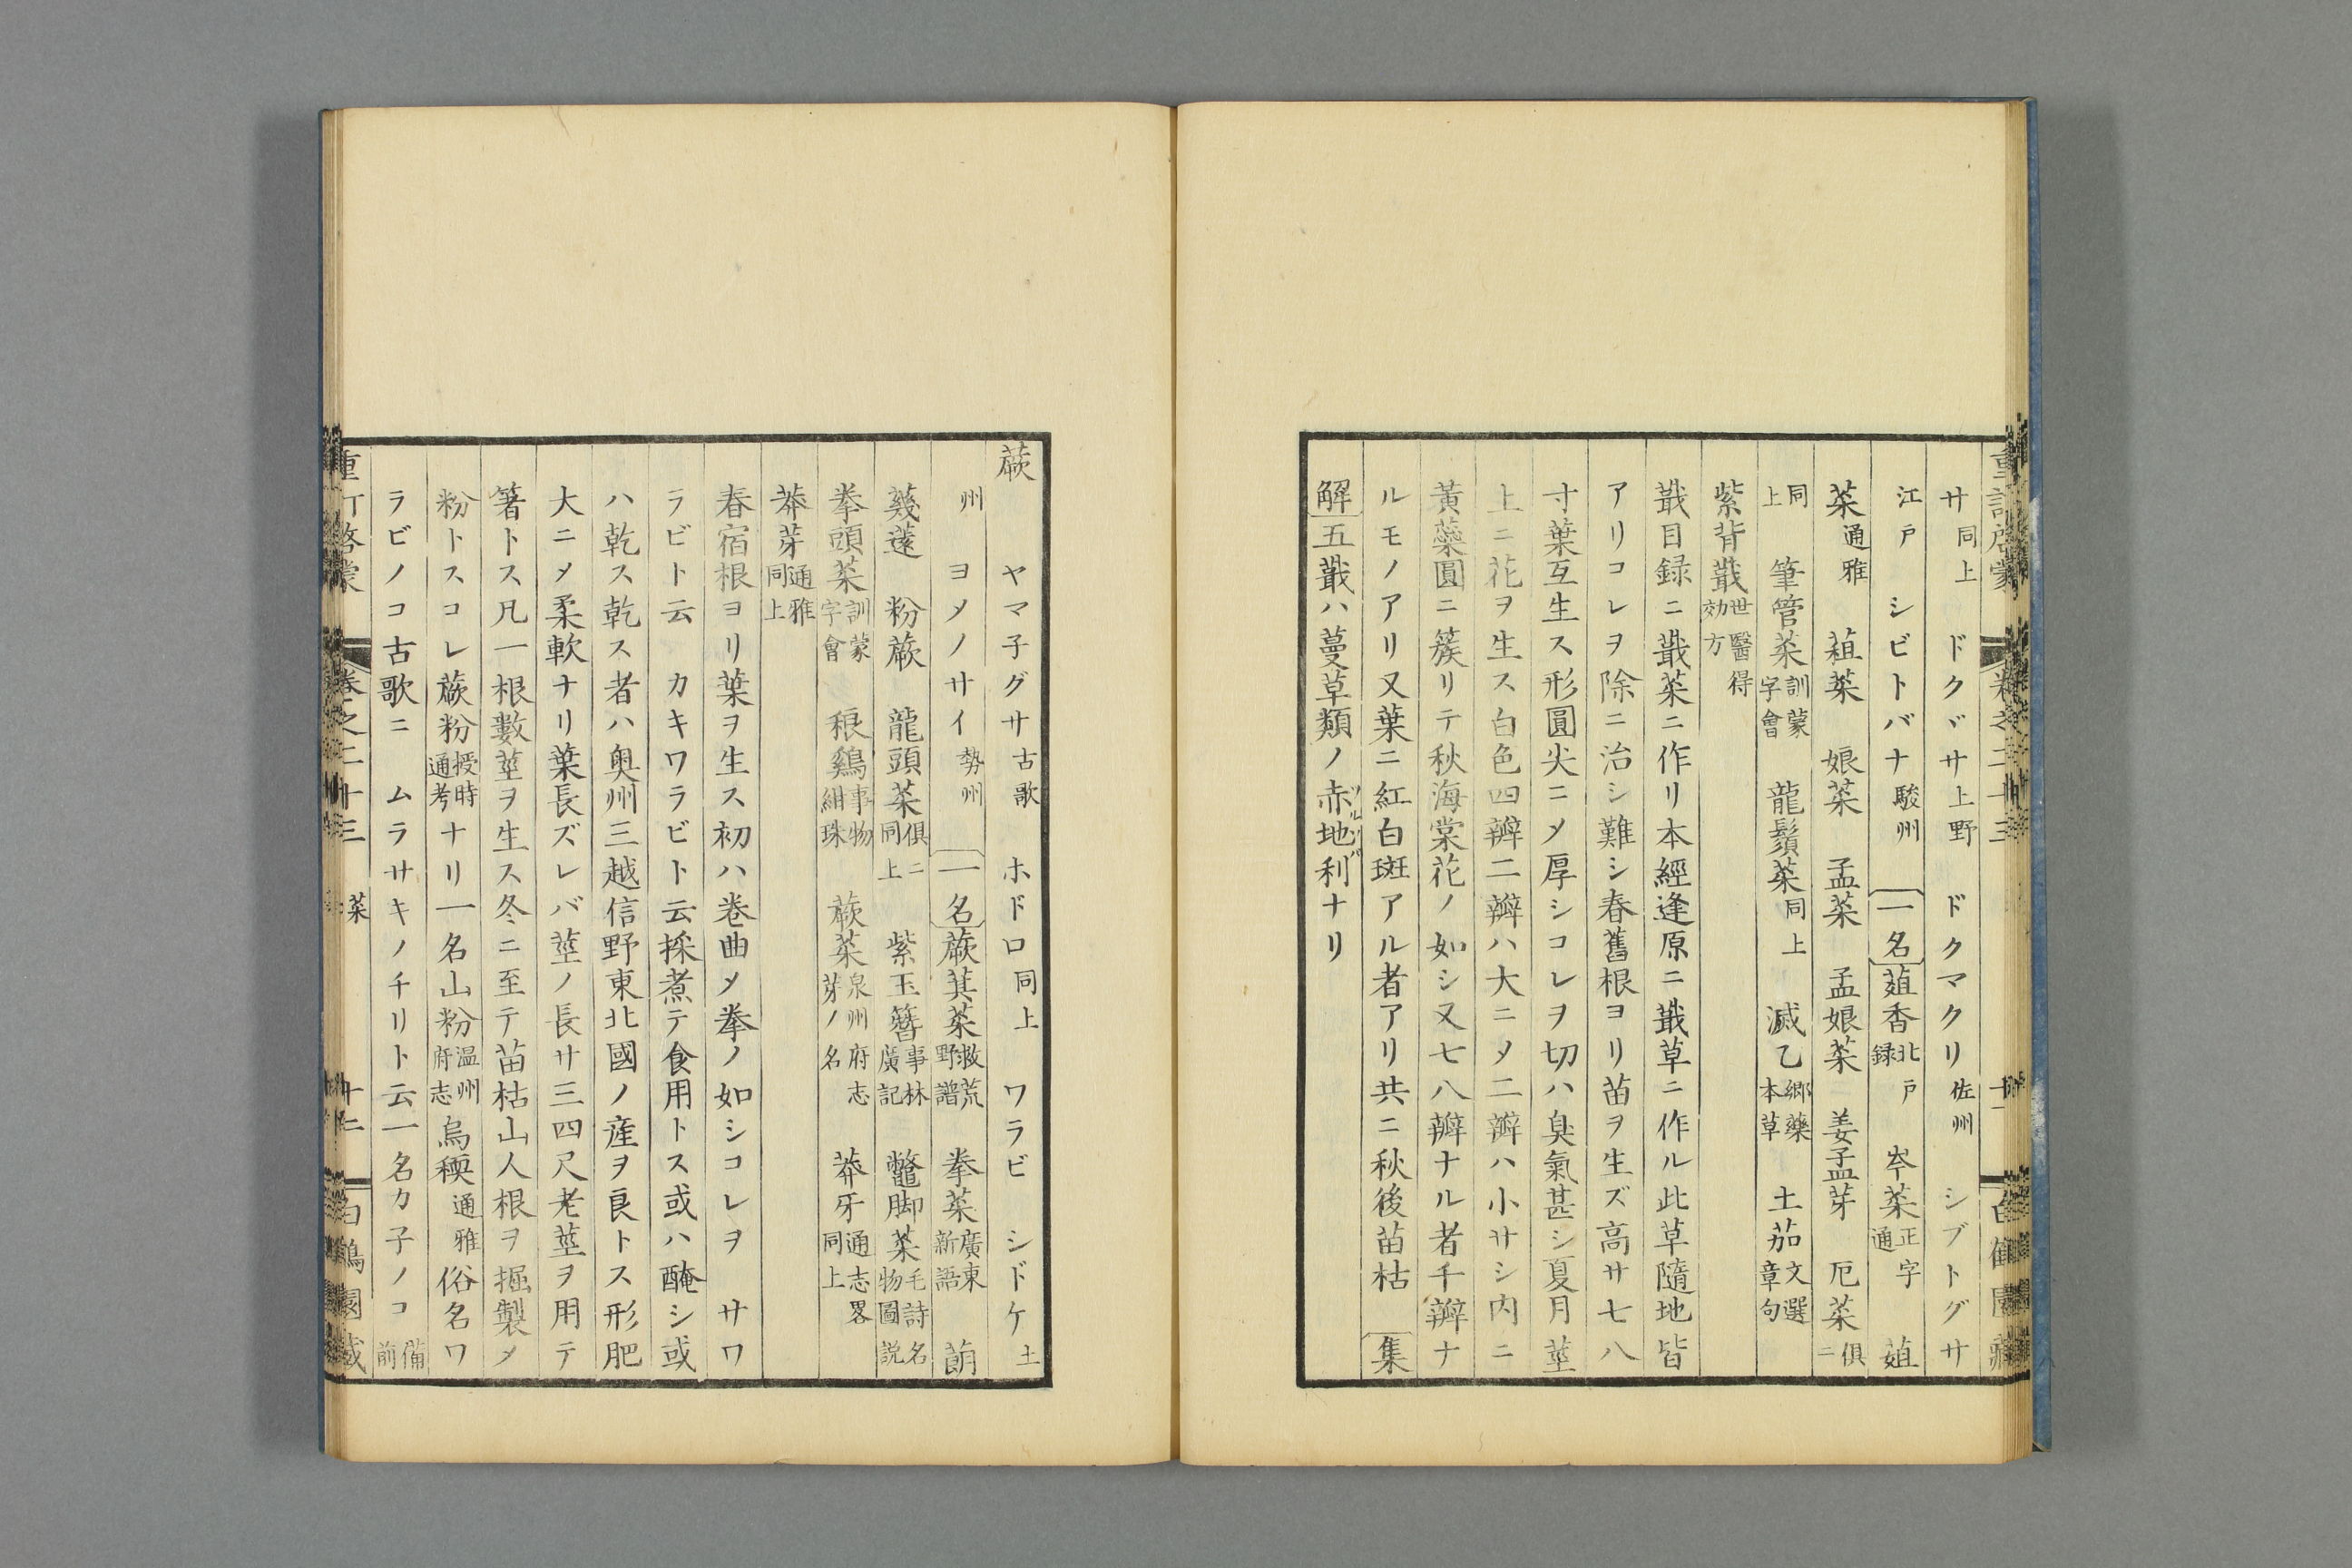 重訂啓蒙 卷之二十三 十一 白鶴園藏
サ同上 ドクヾサ上野 ドクマクリ佐州 シブトグサ
江戸 シビトバナ駿州 一名 葅香北戸録 岑菜正字通 葅
菜通雅 蒩菜 娘菜 孟菜 孟娘菜 姜孟芽 厄菜俱ニ
同上 筆管菜訓蒙字會 龍鬚菜同上 滅乙郷藥本草 土茄文選章句
紫背蕺世醫得効方
蕺目録ニ蕺菜ニ作リ本經逢原ニ蕺草ニ作ル此草隨地皆
アリコレヲ除ニ治シ難シ春舊根ヨリ苗ヲ生ズ高サ七八
寸葉互生ス形圓尖ニメ厚シコレヲ切ハ臭氣甚シ夏月莖
上ニ花ヲ生ス白色四瓣二瓣ハ大ニメ二瓣ハ小サシ内ニ
黃蘂圓ニ簇リテ秋海棠花ノ如シ又七八瓣ナル者千瓣ナ
ルモノアリ又葉ニ紅白斑アル者アリ共ニ秋後苗枯 集
解五蕺ハ蔓草類ノ赤地利ナリ
蕨 ヤマ子グサ古歌 ホドロ同上 ワラビ シドケ土
州 ヨメノサイ勢州 一名 蕨萁菜救荒野譜 拳菜廣東新語 萠
蘷蓫 粉蕨 龍頭菜俱ニ同上 紫玉簪事林廣記 鼈脚菜毛詩名物圖説
拳頭菜訓蒙字會 稂鷄事物紺珠 蕨菜泉州府志芽ノ名 莽牙通志畧同上
莽芽通雅同上
春宿根ヨリ葉ヲ生ス初ハ卷曲メ拳ノ如シコレヲ サワ
ラビト云 カキワラビト云採煮テ食用トス或ハ醃シ或
ハ乾ス乾ス者ハ奥州三越信野東北國ノ産ヲ良トス形肥
大ニメ柔軟ナリ葉長ズレバ莖ノ長サ三四尺老莖ヲ用テ
箸トス凡一根數莖ヲ生ス冬ニ至テ苗枯山人根ヲ掘製メ
粉トスコレ蕨粉授時通考ナリ一名山粉温州府志 烏糯通雅 俗名ワ
ラビノコ古歌ニ ムラサキノチリト云一名カ子ノコ備前
重訂啓蒙 卷之二十三 菜 十二 白鶴園藏